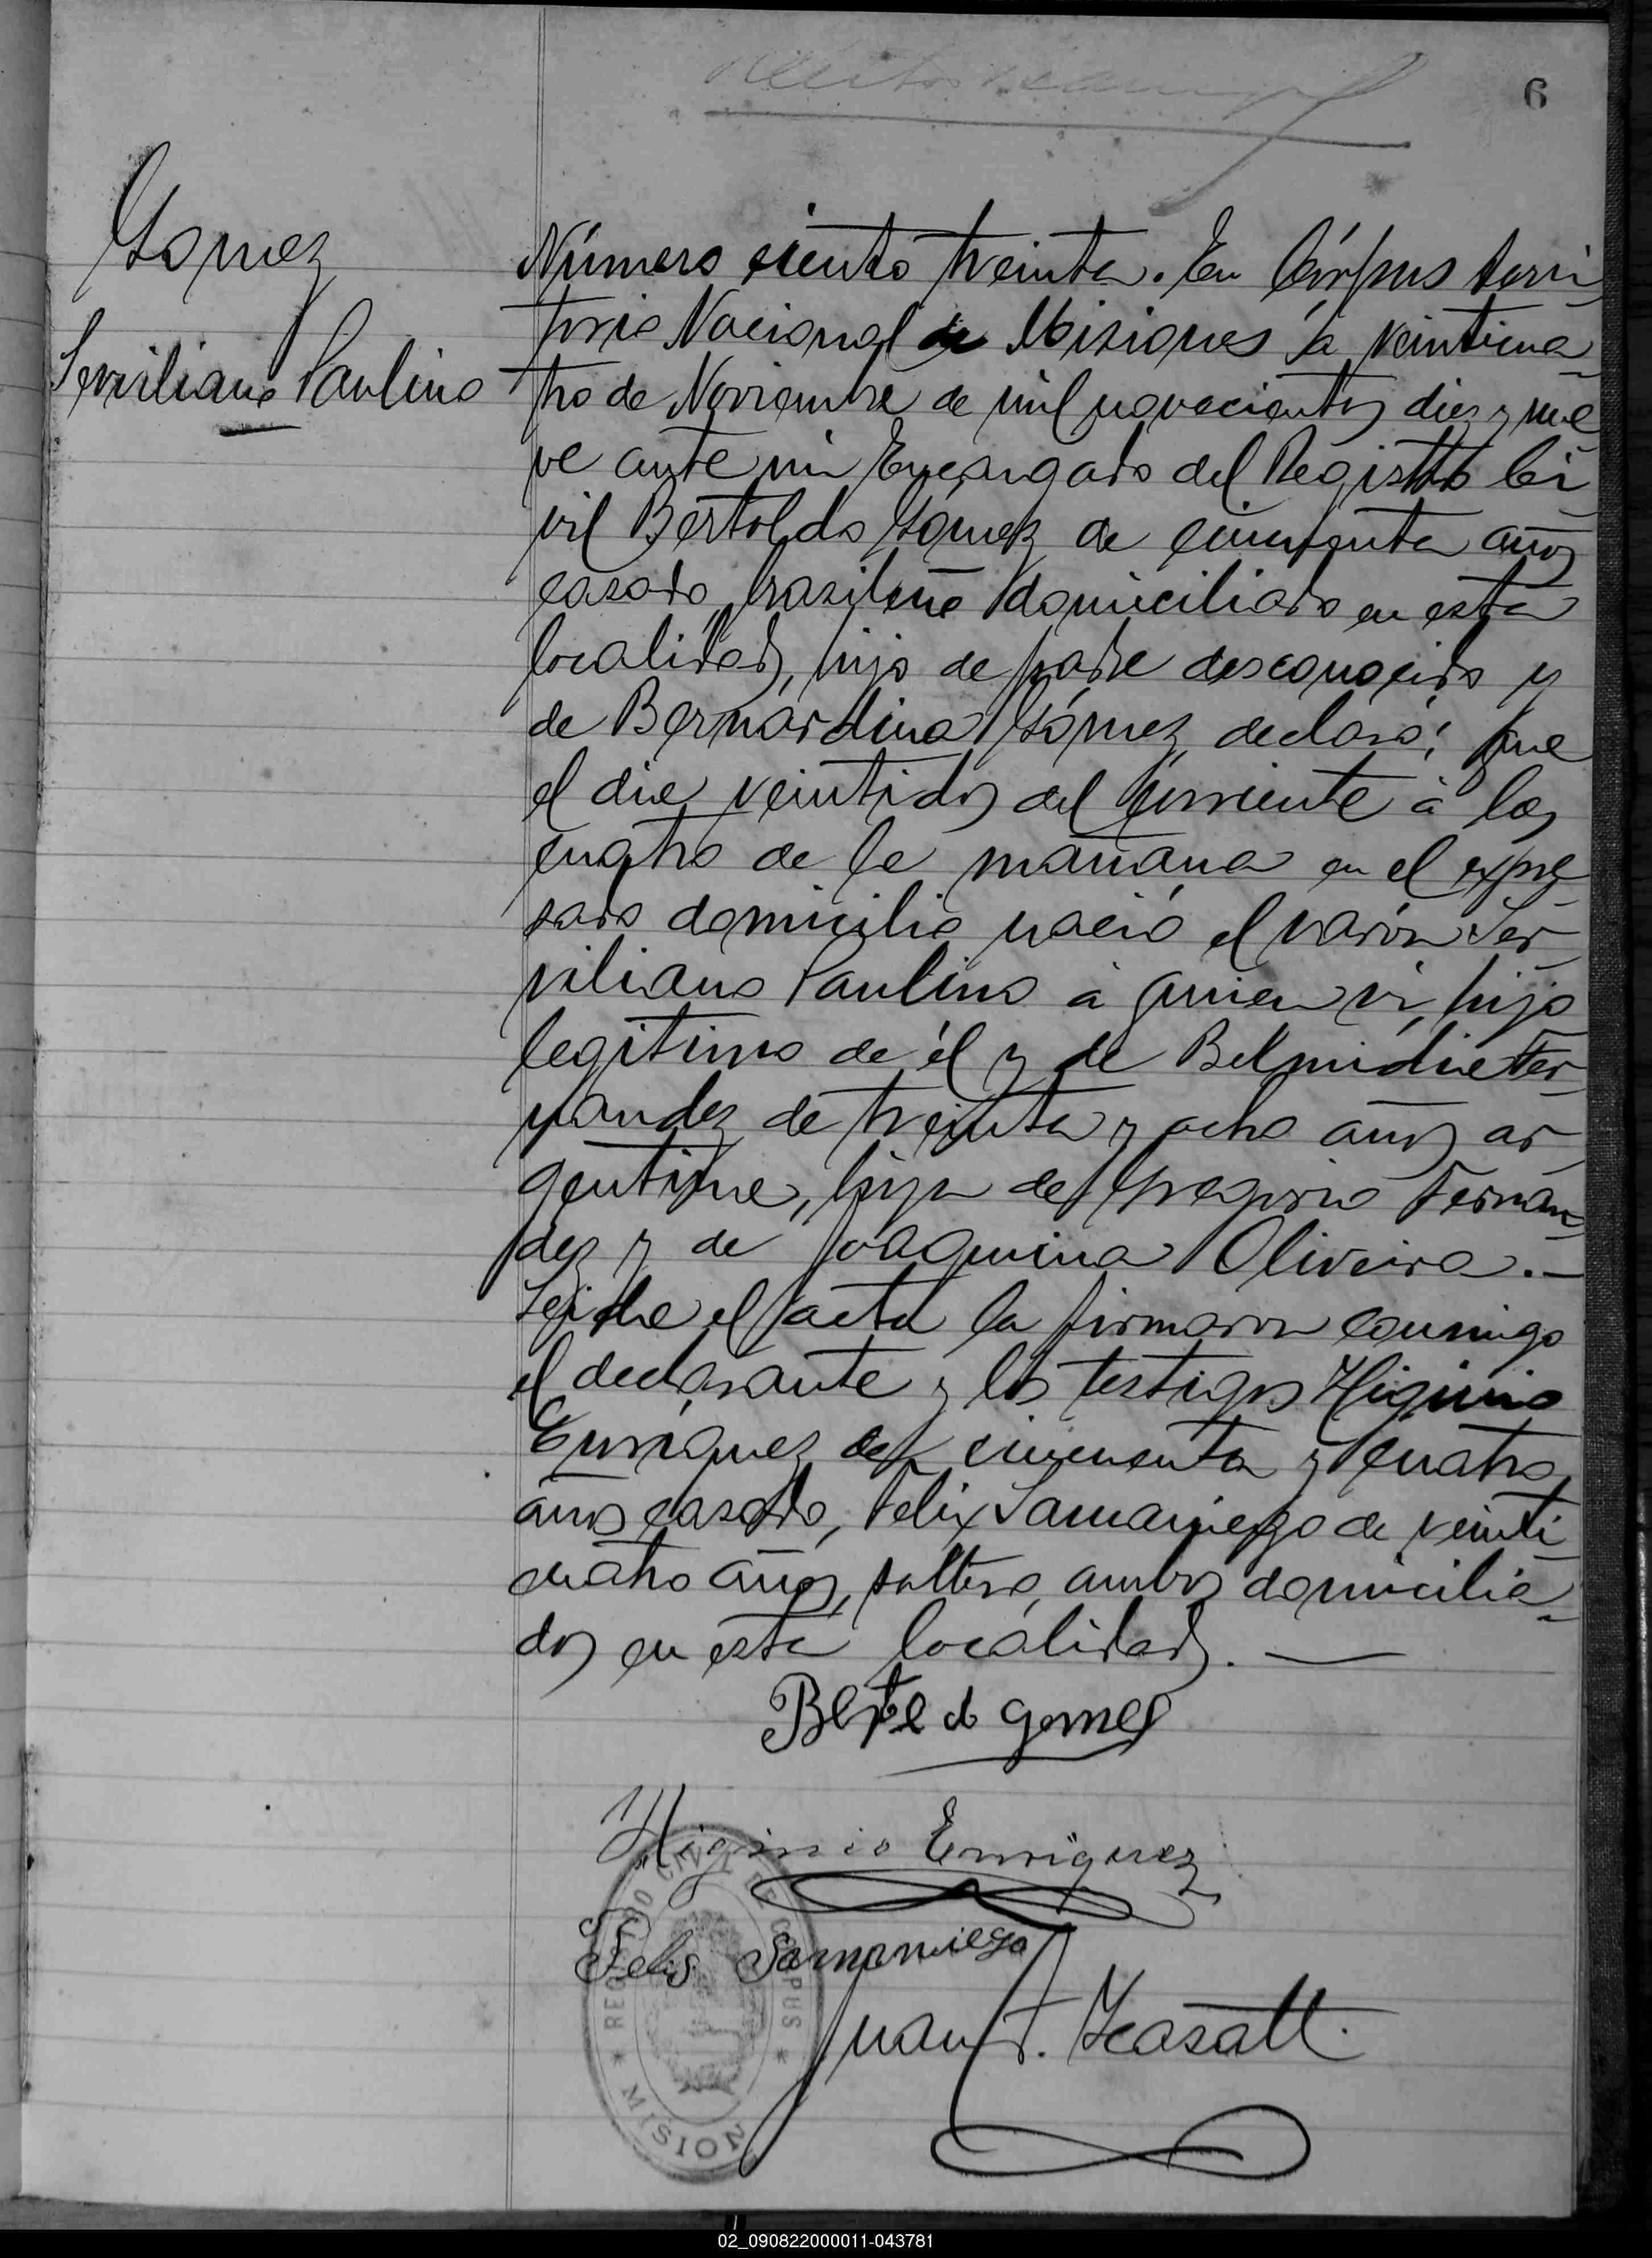 6
Gomez
Serviliano Paulino
Número ciento treinta. En Córpus terri
torio Nacional de Misiones á veinticua
tro de Noviembre de mil novecientos diez y nue
ve ante mi Encargado del Registro Ci
vil Bertoldo Gómez de cincuenta años
casado, brasileño domiciliado en esta
localidad, hijo de padre desconocido y
de Bernardina Gómez, declaró: que
el dia veintidos del corriente á las
cuatro de la mañana en el expre
sado domicilio nació el varón Ser
viliano Paulino á quien vi, hijo
legitimo de él y de Belmidia Fer
nandez de treinta y ocho años ar
gentina, hija de Gregorio Fernan
dez y de Joaquina Oliveira.—
Leida el acta la firmaron conmigo
el declarante y los testigos Higinio
Enriquez de cincuenta y cuatro
años casado, Felix Samaniego de veinti
cuatro años, soltero, ambos domicilia
dos en esta localidad. —
Gomes
Higinio Enriquez
Felis Samaniego
Juan
REGISTRO CIVIL DE CORPUS
* MISIONES *
02_090822000011-043781